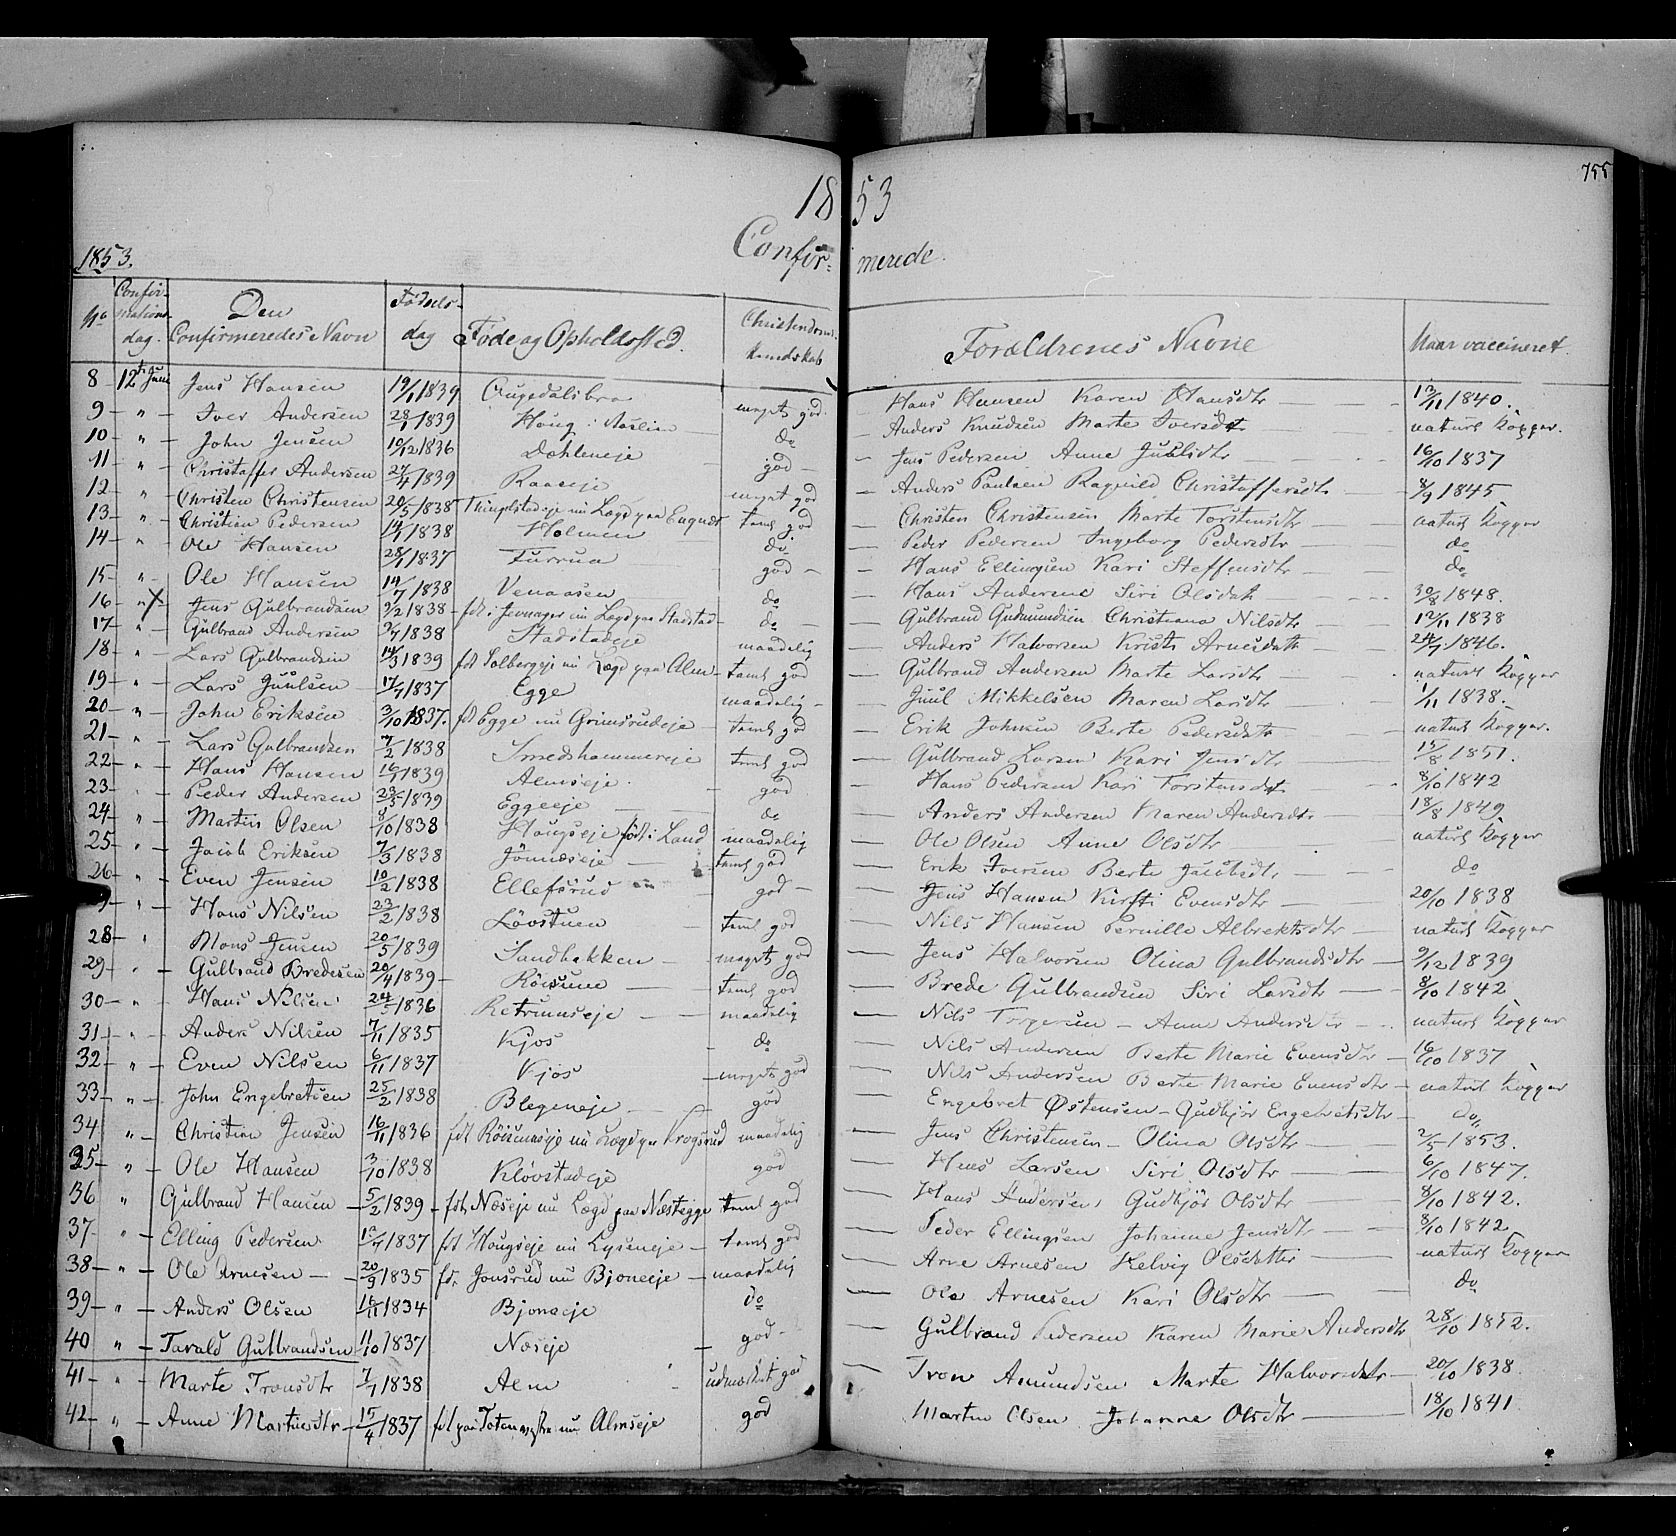 755
1853
1853.
Confir= merede.
No Confirmations dag. Den Confirmeredes Navn Fødselsdag Føde og Opholdssted. Christendoms Kundskab Forældrenes Navne Naar vaccineret
8 12te Juni Jens Hansen 19/1 1839 Augedalsbra Hans Hansen Karen Hansdtr 13/11 1840.
9 " Iver Andersen 28/1 1839 Houg i Aaslien meget god Anders Knudsen Marte Iversdtr naturl Kopper.
10 " John Jensen 10/12 1836 Dæhleneje do Jens Pedersen Anne Juulsdtr 16/10 1837
11 " Christoffer Andersen 27/4 1839 Raaseje god Anders Paulsen Ragnild Christoffersdtr 8/9 1845
12 " Christen Christensen 20/5 1838 Thingelstadeje nu Lægd paa meget god Christen Christensen Marte Torstensdtr naturl Kopper
13 " Christian Pedersen 14/1 1838 Holmen teml god Peder Pedersen Ingeborg Pedersdtr do
14 " Ole Hansen 28/1 1837 Furrua do Hans Ellingsen Kari Steffensdtr do
15 " Ole Hansen 14/7 1838 Venaasen god Hans Andersen Siri Olsdtr 30/8 1848.
16 " Jens Gulbrandsen 9/2 1838 fdt i Jevnager nu Lægd paa Stadstad do Gulbrand Gudmundsen Christiana Nilsdtr 12/11 1838
17 " Gulbrand Andersen 9/7 1838 Stadstadeje do Anders Halvorsen Kristi Arnesdatt 24/7 1846.
18 " Lars Gulbrandsen 14/3 1839 fdt Solbergeje nu Lægd paa Alm maadelig Gulbrand Andersen Marte Larsdtr naturl Kopper
19 " Lars Juulsen 17/7 1837 Egge temt god Juul Mikkelsen Maren Larsdtr 1/11 1838.
20 " John Eriksen 3/10 1837. fdt Egge nu Grimsrudeje maadelig Erik Johnsen Berte Pedersdatr naturl Kopper.
21 " Lars Gulbrandsen 7/2 1838 Smedshammereje temt god Gulbrand Larsen Kari Jensdtr 15/8 1851.
22 " Hans Hansen 16/1 1839 Almseje temt god Hans Pedersen Kari Torstensdtr 8/10 1842
23 " Peder Andersen 23/5 1839 Eggeeje god Anders Andersen Maren Andersdtr 18/8 1849
24 " Martin Olsen 8/10 1838 Hougseje født i Land do Ole Olsen Anne Olsdtr naturl Kopper
25 " Jacob Eriksen 7/3 1838 Jønnæseje maadelig Erik Iversen Berte Jacobsdtr do
26 " Even Jensen 10/2 1838 Ellefsrud temt god Jens Hansen Kirsti Evensdtr 20/10 1838
" Hans Nilsen 23/2 1838 Løvstuen god Nils Hansen Pernille Albrektsdtr naturl Kopper
28 " Mons Jensen 20/5 1839 Sandbakken temt god Jens Halvorsen Olina Gulbrandsdtr 9/12 1839
29 " Gulbrand Bredesen 20/4 1839 Røisume meget god Brede Gulbrandsen Siri Larsdtr 8/10 1842
30 " Hans Nilsen 24/5 1836 Ketrumseje temt god Nils Torgersen Anne Andersdtr naturl Kopper
31 " Anders Nilsen 7/11 1835 Kjos maadelig Nils Andersen Berte Marie Evensdtr 16/10 1837
32 " Even Nilsen 6/11 1837 Kjos do Nils Andersen Berte Marie Evensdtr naturl Kopper
33 " John Engebretsen 25/2 1838 Blegeneje meget god Engebret Østensen Gudbjør Engebretsdtr do
34 " Christian Jensen 16/11 1836 fdt Røisumseje nu Lægd paa Krogsrud god maadelig Jens Christensen Olina Olsdtr 2/5 1853.
35 " Ole Hansen 3/10 1838 Kløvstadeje god Hans Larsen Siri Olsdtr 6/10 1847.
36 " Gulbrand Hansen 5/2 1839 fdt Næseje nu Lægd paa Næstegge temt god Hans Andersen Gudbjør Olsdtr 8/10 1842.
37 " Elling Pedersen 12/7 1837 fdt Hougseje nu Lyseneje temt god Peder Ellingsen Johanne Jensdtr 8/10 1842
38 " Ole Arnesen 20/9 1835 fdt Jonsrud nu Bjoneeje maadelig Arne Arnesen Helvig Olsdatter naturl Kopper
39 " Anders Olsen 16/11 1834 Bjoneeje do Ole Arnesen Kari Olsdtr do
40 " Tarald Gulbrandsen 11/10 1837 Næseje god Gulbrand Pedersen Karen Marie Andersdtr 28/10 1852.
41 " Marte Tronsdtr 7/7 1838 Alm udmærket god Tron Amundsen Marte Halvorsdtr 20/10 1838.
42 " Anne Martinsdtr 15/4 1837 fdt paa Toten nu Almseje god Martin Olsen Johanne Olsdtr 18/10 1841